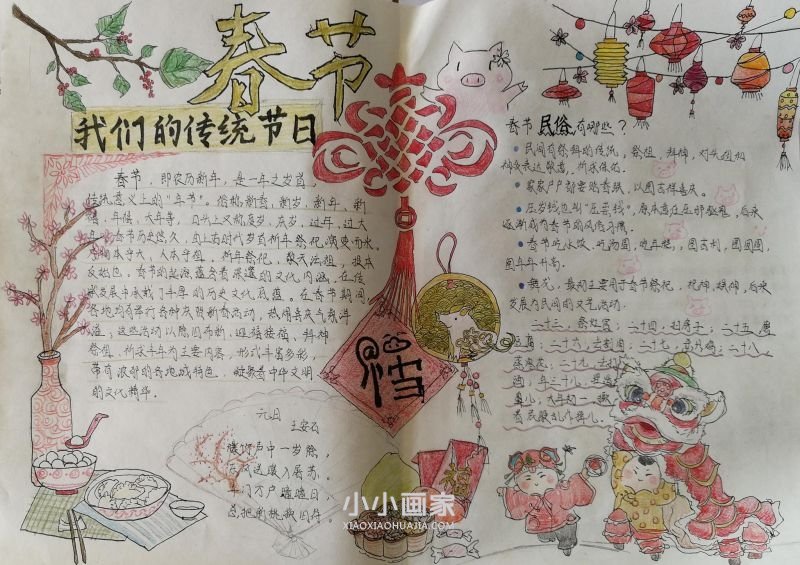 春节
我们的传统节日
春节，即农历新年，是一年之岁首，
传统意义上的“年节”。俗称新春，新岁，新年，新
禧，年禧，大年等，口头上又称度岁，庆岁，过年，过大
年。春节历史悠久，由上古时代岁首祈年祭祀演变而来。
万物本乎天，人本乎祖，祈年祭祀，敬天法祖，报本
反始也。春节的起源蕴含着深邃的文化内涵，在传
承发展中承载了丰厚的历史文化底蕴。在春节期间，
各地均有举行各种庆贺新春活动，热闹喜庆气氛洋
溢，这些活动以除旧布新，迎禧接福，拜神
祭祖，祈求丰年为主要内容，形式丰富多彩，
带有浓郁的各地域特色，凝聚着中华文明
的文化精华。
元日
王安石
爆竹声中一岁除，
春风送暖入屠苏。
千门万户曈曈日，
总把新桃换旧符。
福
春节民俗有哪些？
民间有祭拜的传统，祭祖，拜神，
家家户户都要贴春联，以图吉祥喜庆。
压岁钱也叫“压祟钱”，
逐渐成为春节的风俗习惯。
春节吃水饺，吃汤圆，吃年糕，图吉利，图团圆，
图年年升高。
舞龙，最初主要用于春节祭祀，祀神，娱神，后来
发展为民间的文艺活动。
二十三，祭灶官；二十四，扫房子；二十五，磨
豆腐；二十六，去割肉；二十七，
二十八
福
小小画家
XIAOXIAOHUAJIA.COM